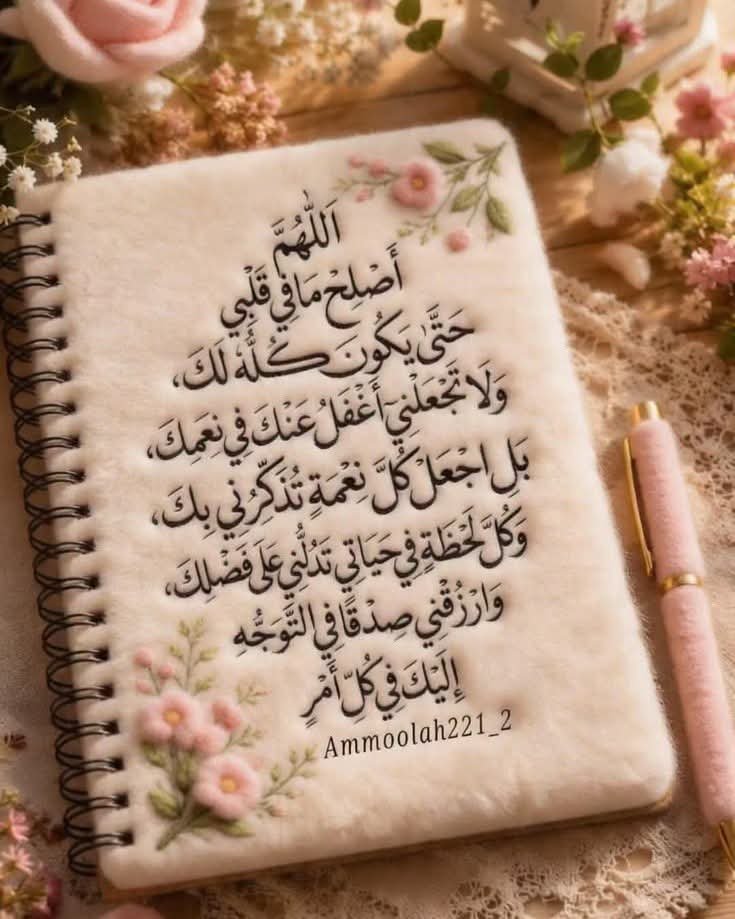 اَللّٰهُمَّ
أَصْلِحْ مَا فِي قَلْبِي
حَتَّىٰ يَكُونَ كُلُّهُ لَكَ،
وَلَا تَجْعَلْنِي أَغْفَلُ عَنْكَ فِي نِعَمِكَ،
بَلِ اجْعَلْ كُلَّ نِعْمَةٍ تُذَكِّرُنِي بِكَ،
وَكُلَّ لَحْظَةٍ فِي حَيَاتِي تَدُلُّنِي عَلَى فَضْلِكَ،
وَارْزُقْنِي صِدْقًا فِي التَّوَجُّهِ
إِلَيْكَ فِي كُلِّ أَمْرٍ
Ammoolah221_2